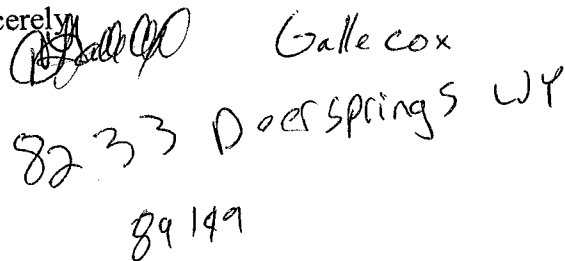 cerely,
Galle cox
8233 Deersprings WY
89149